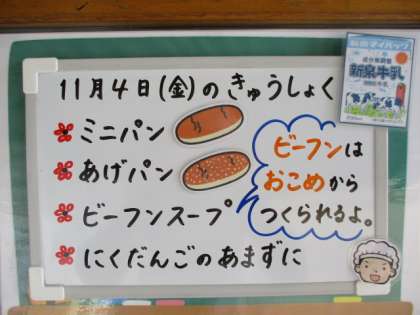 11月4日(金)のきゅうしょく
ミニパン
あげパン
ビーフンスープ
にくだんごのあまずに
ビーフンは
おこめから
つくられるよ。
成分無調整
新泉牛乳